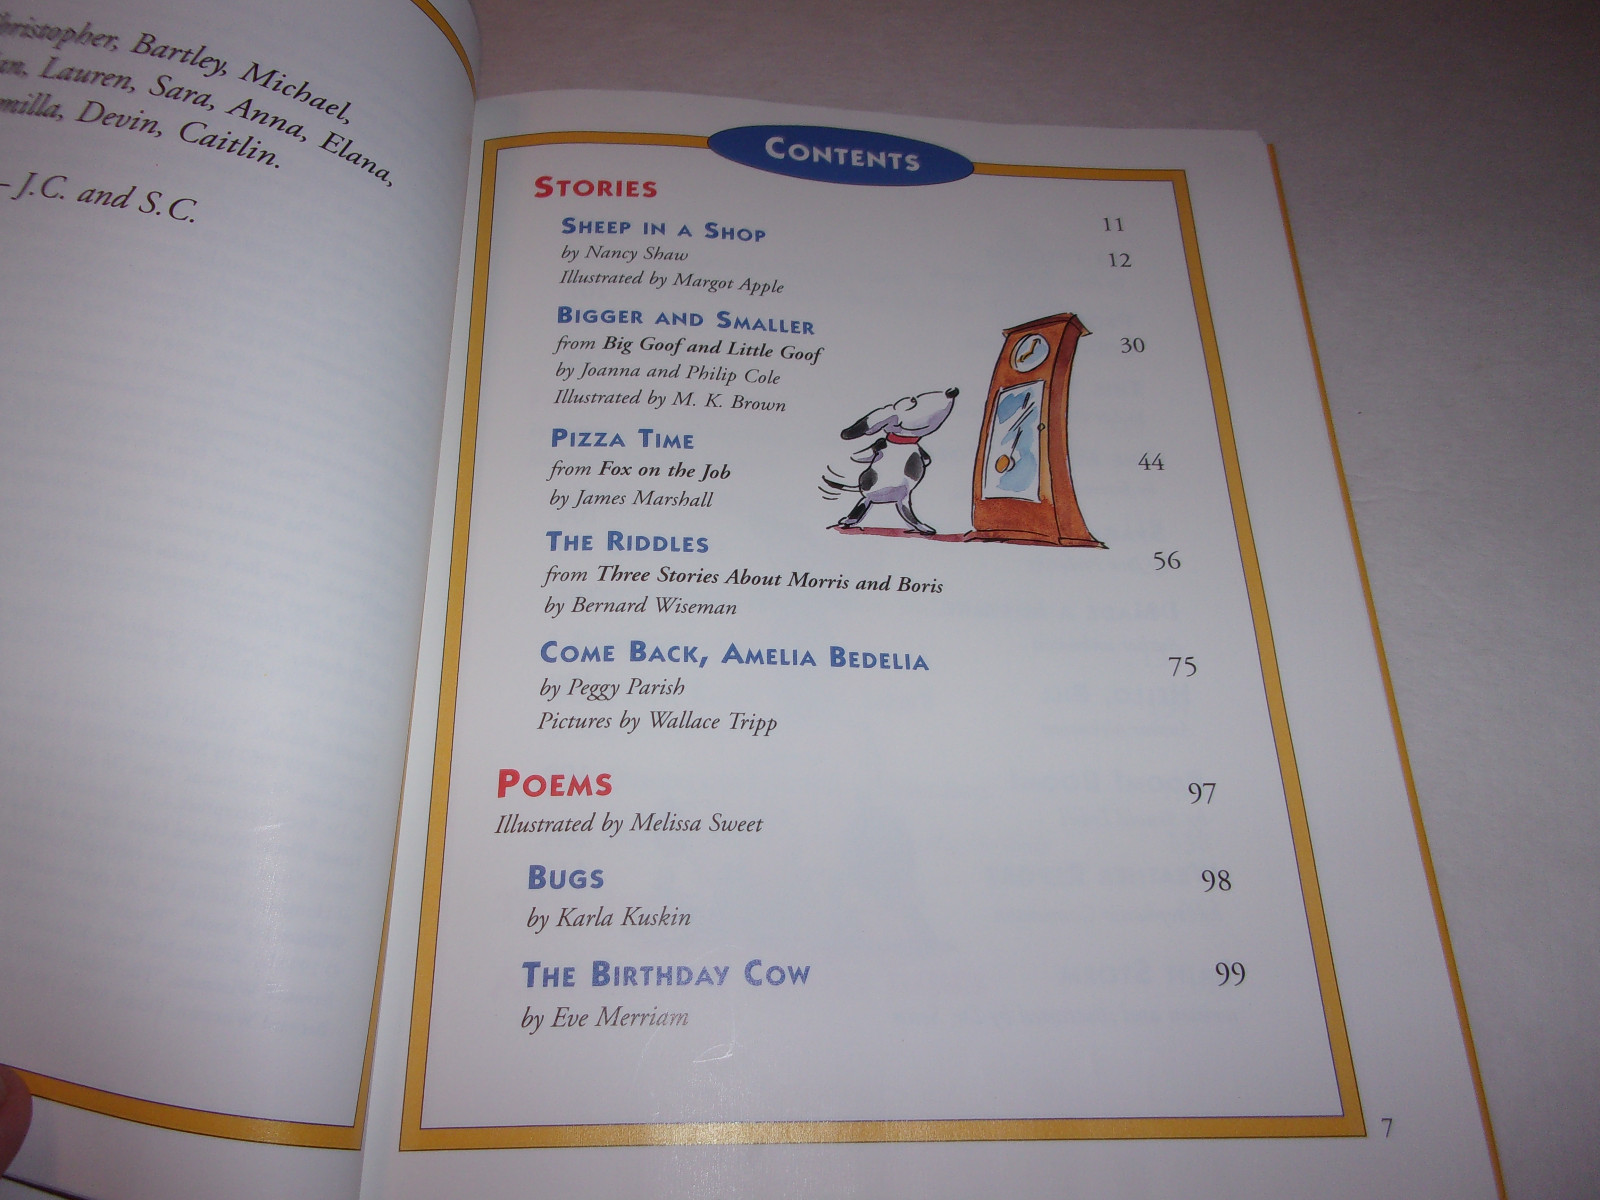 Bartley, Michael,
Lauren, Sara, Anna, Elana,
Devin, Caitlin.
– J.C. and S.C.
CONTENTS
STORIES 11
SHEEP IN A SHOP 12
by Nancy Shaw
Illustrated by Margot Apple
BIGGER AND SMALLER 30
from Big Goof and Little Goof
by Joanna and Philip Cole
Illustrated by M. K. Brown
PIZZA TIME 44
from Fox on the Job
by James Marshall
THE RIDDLES 56
from Three Stories About Morris and Boris
by Bernard Wiseman
COME BACK, AMELIA BEDELIA 75
by Peggy Parish
Pictures by Wallace Tripp
POEMS 97
Illustrated by Melissa Sweet
BUGS 98
by Karla Kuskin
THE BIRTHDAY COW 99
by Eve Merriam
7